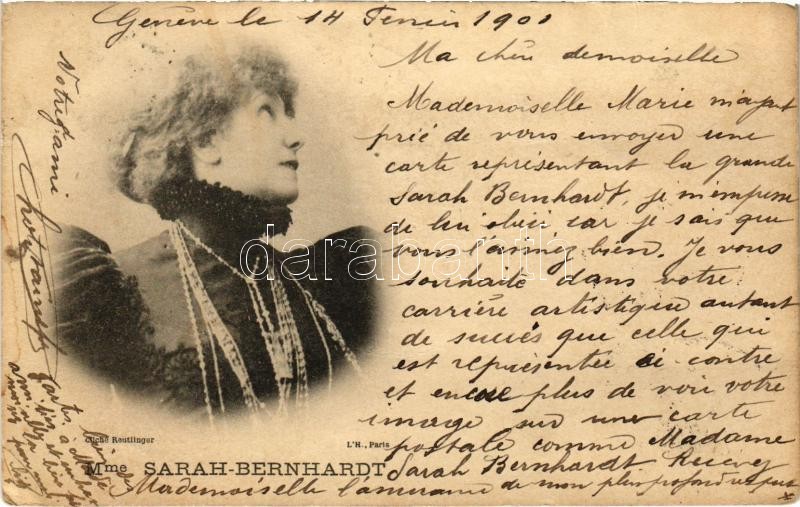 Genève le 14 Fevrier 1901
Ma chère demoiselle
Mademoiselle Marie m'ayant
prié de vous envoyer une
carte représentant la grande
Sarah Bernhardt, je m'empresse
de lui obéir car je sais que
vous l'aimez bien. Je vous
souhaite dans votre
carrière artistique autant
de succès que celle qui
est représentée ci contre
et encore plus de voir votre
image sur une carte
postale comme Madame
Sarah Bernhardt Recevez
Mademoiselle l'assurance de mon plus profond respect
Votre ami
darabanth.com
Cliché Reutlinger
L'H., Paris
Mme SARAH-BERNHARDT